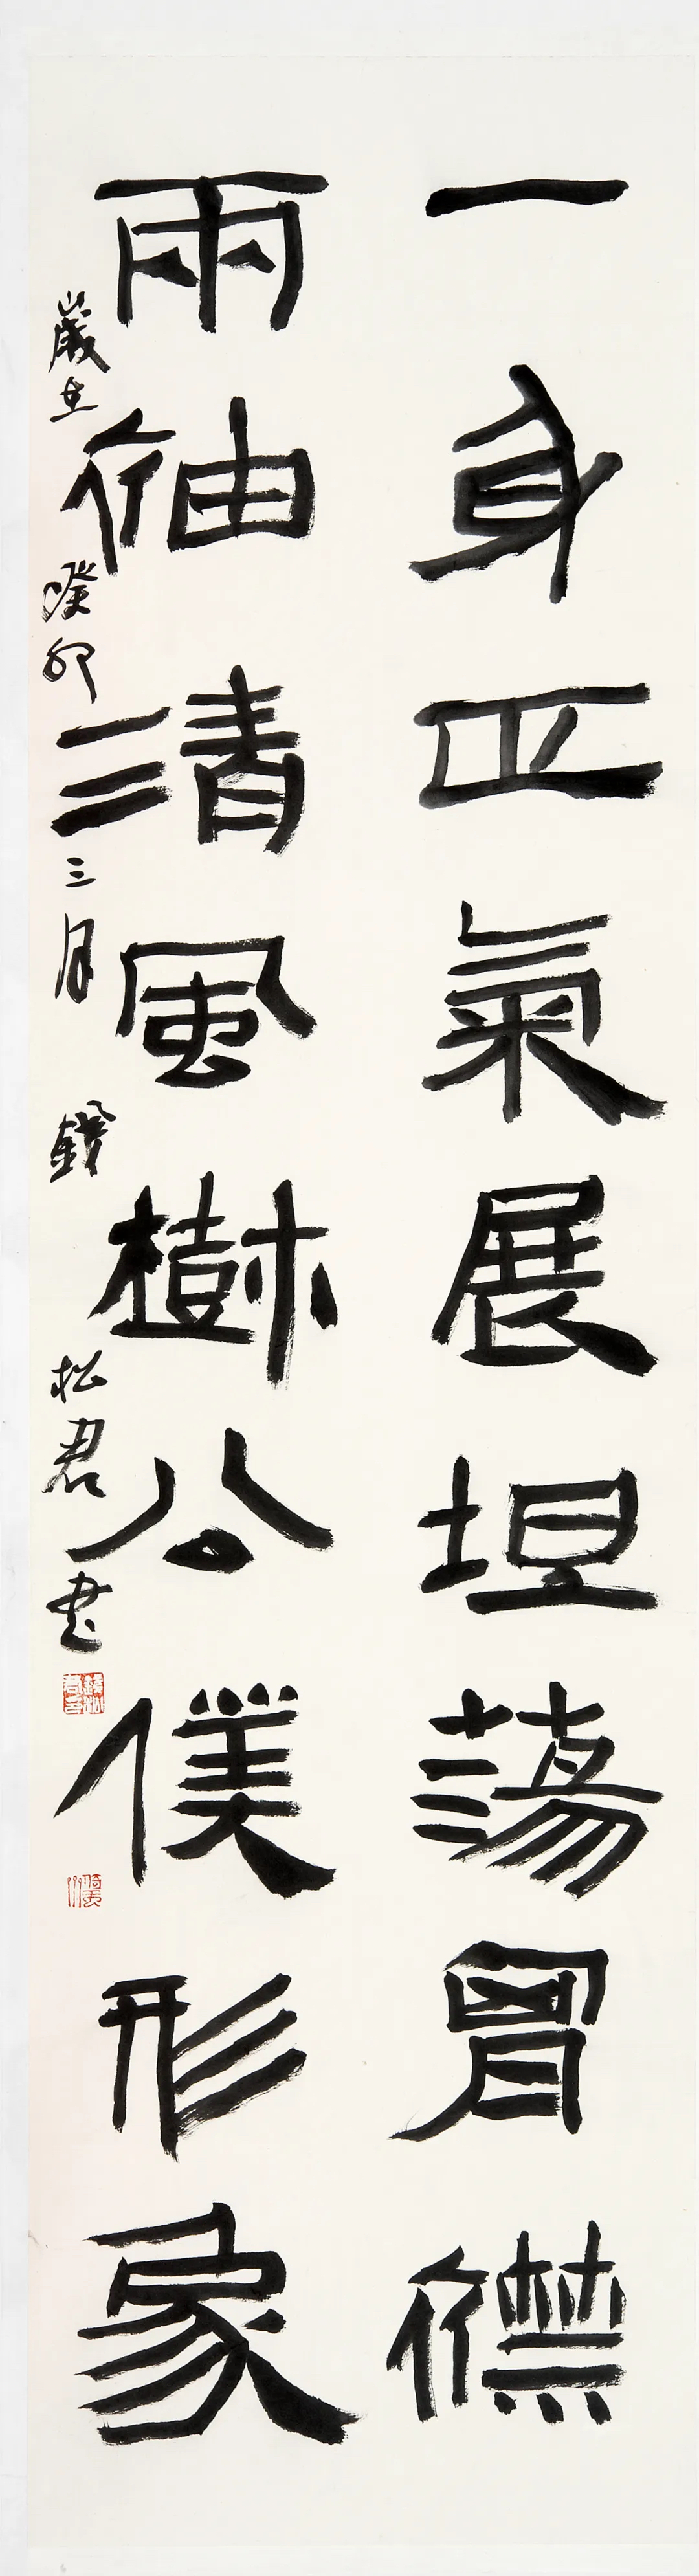 一身正氣展坦蕩胷襟
兩袖清風樹公僕形象
歲在癸卯三月 錢松君書